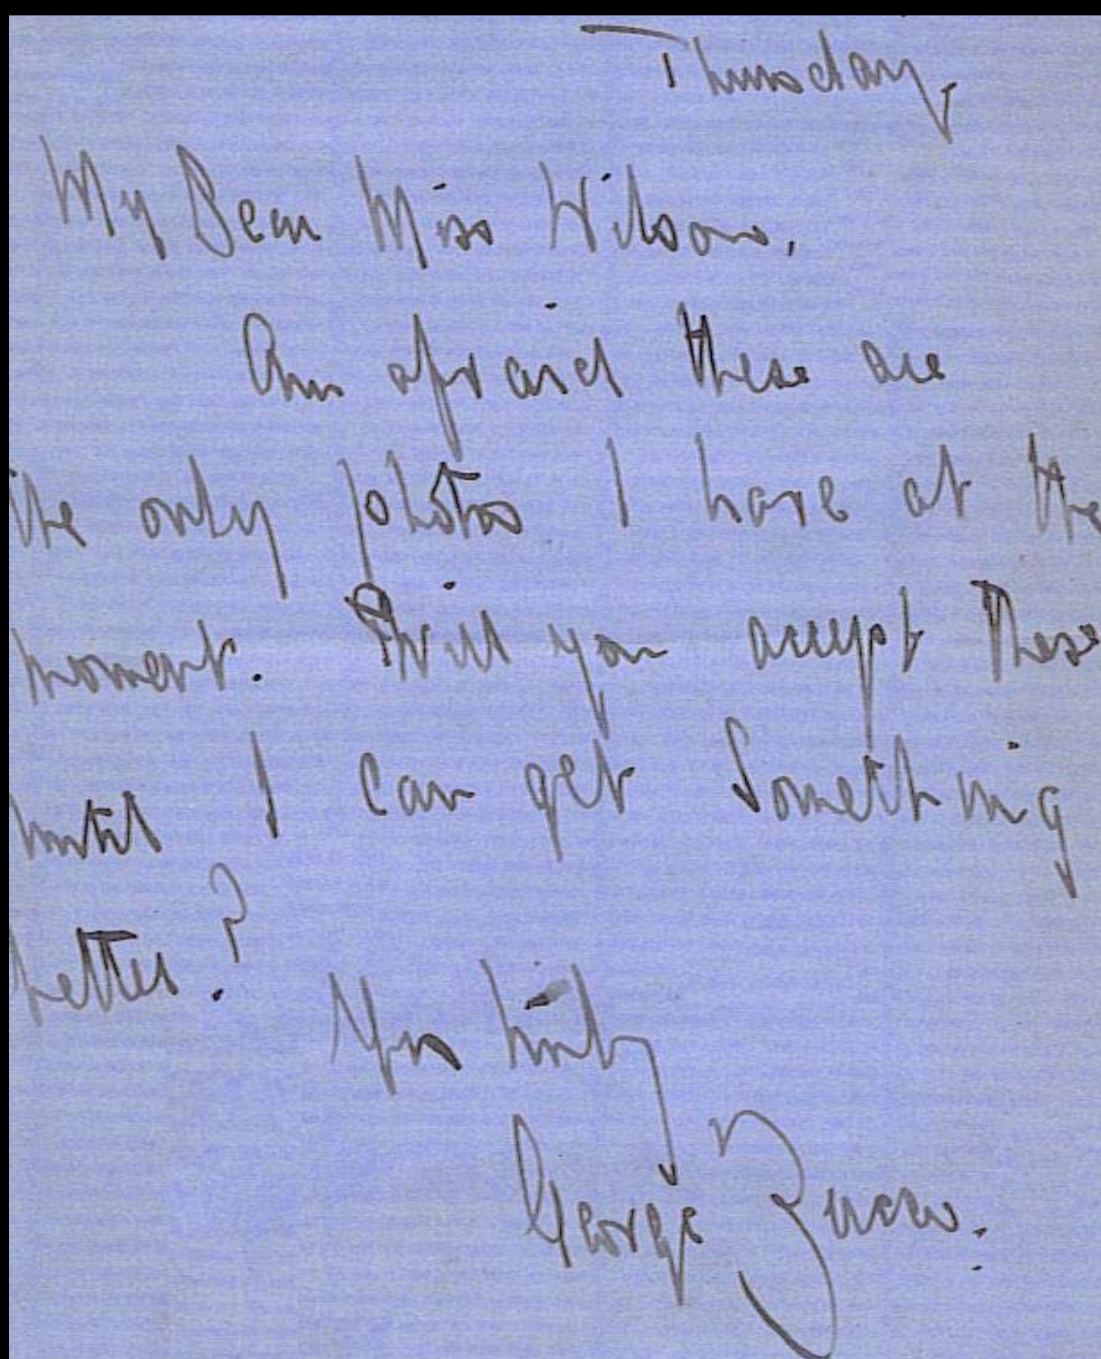 Thursday
My Dear Miss Wilson,
Am afraid these are
the only photos I have at the
moment. Will you accept these
until I can get Something
better?
Yrs truly
George Zucco.